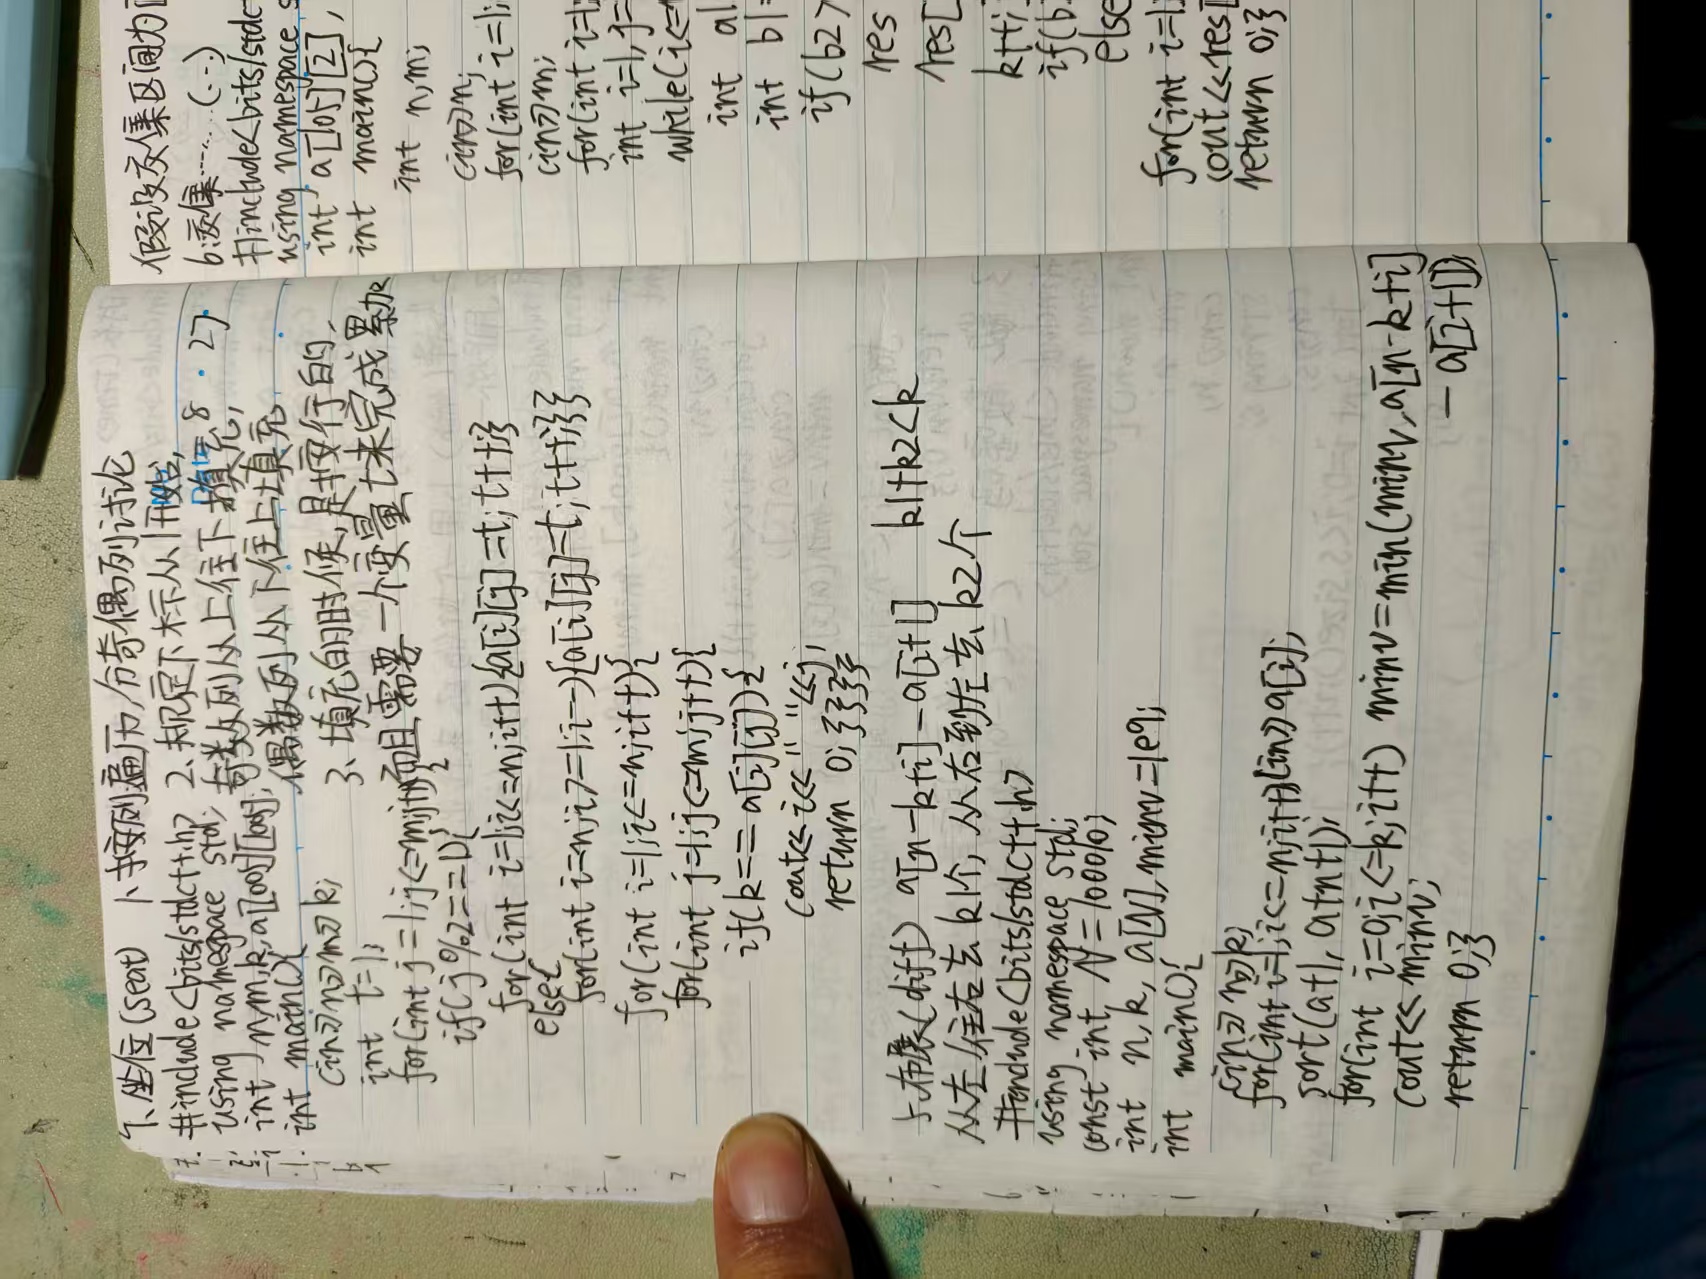 7、坐位(seat) 1、按列遍历，分奇偶列讨论
#include<bits/stdc++.h> 2、规定下标从1开始，
using namespace std; 奇数列从上往下填充，
DATE 8 · 27
int n,m,k,a[100][100]; 偶数列从下往上填充。
int main(){ 3、填充的时候,是按行的,
cin>>n>>m>>k; 而且需要一个变量t来完成累加
int t=1;
for(int j=1;j<=m;j++){
if(j%2==1){
for(int i=1;i<=n;i++){a[i][j]=t;t++;}}
else{
for(int i=n;i>=1;i--){a[i][j]=t;t++;}}}
for(int i=1;i<=n;i++){
for(int j=1;j<=m;j++){
if(k==a[i][j]){
cout<<i<<" "<<j;
return 0;}}}}
布展(diff) a[n-k+i]-a[i+1] k1+k2<k
从左往右去k1个，从右到左去k2个
#include<bits/stdc++.h>
using namespace std;
const int N=10010;
int n,k,a[N],minv=1e9;
int main(){
cin>>n>>k;
for(int i=1;i<=n;i++)cin>>a[i];
sort(a+1,a+n+1);
for(int i=0;i<=k;i++) minv=min(minv,a[n-k+i]
-a[i+1]);
cout<<minv;
return 0;}
假设交集区间为
b:交集……(…)
#include<bits/stdc
using namespace s
int a[105][2],
int main(){
int n,m;
cin>>n;
for(int i=1;
cin>>m;
for(int i=1
int i=1,j=
while(i<=
int a1
int b1=
if(b2>
res
res[
k++;
if(b
else
for(int i=1
cout<<res[
return 0;}